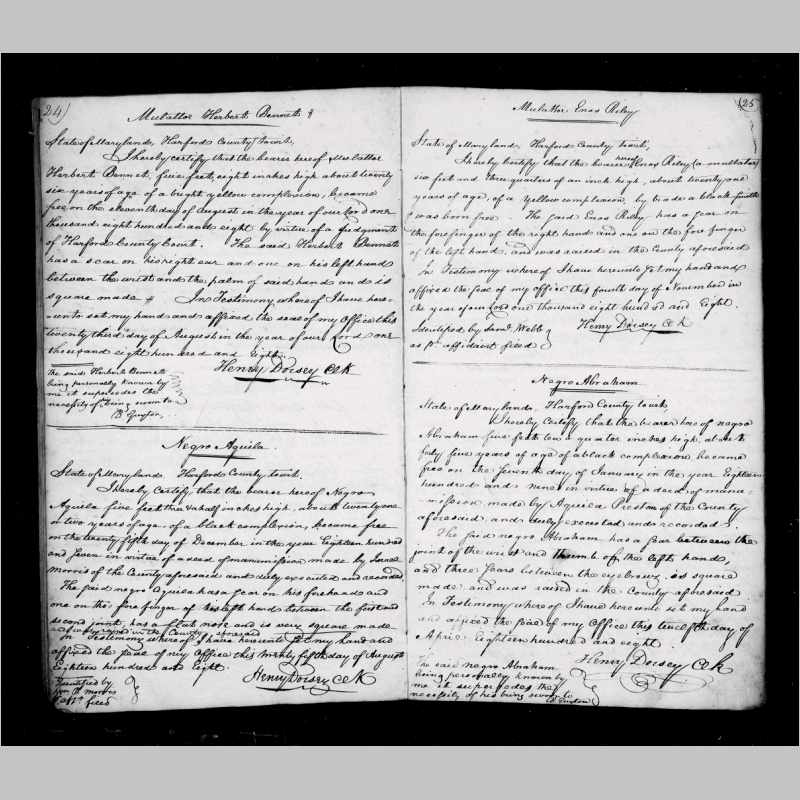 24)
Mulattoe Herbert Bennett
State of Maryland, Harford County, to wit,
I hereby certify that the bearer hereof Mulattoe
Herbert Bennet, five feet, eight inches high about twenty
six years of age of a bright yellow complexion, became
free on the eleventh day of August in the year of our Lord one
thousand eight hundred and eight by virtue of a Judgment
of Harford County Court. The said Herbert Bennett
has a scar on his right ear and one on his left hand
between the wrist and the palm of said hand and is
square made In Testimony whereof I have here-
unto set my hand and affixed the seal of my Office this
twenty third day of August in the year of our Lord one
thousand eight hundred and Eight.
Henry Dorsey Clk
The said Herbert Bennett
being personally known by
me it supercedes the
necessity of being sworn to
B. Guyton
Negro Aquila
State of Maryland Harford County to wit.
I hereby certify that the bearer hereof Negro
Aquila five feet three & a half inches high, about twenty one
or two years of age, of a black complexion, became free
on the twenty fifth day of December in the year Eighteen hundred
and Seven in virtue of a deed of manumission made by Israel
Morris of the County aforesaid and duly executed and recorded
The said negro Aquila has a scar on his forehead and
one on the fore finger of his left hand between the first and
second joint, has a flat nose and is very square made
and was raised in the County aforesaid
In Testimony whereof I have hereunto set my hand and
affixed the seal of my Office this twenty fifth day of August
Eighteen hundred and Eight.
Henry Dorsey Clk
Identified by
filed
(25
Mulattoe Enos Riley
State of Maryland Harford County to wit,
I hereby Certify that the bearer hereof Enos Riley (a mulattoe)
six feet and three quarters of an inch high, about twenty one
years of age, of a yellow complexion, by trade a black smith
was born free. The said Enos Riley has a scar on
the forefinger of the right hand and one on the fore finger
of the left hand, and was raised in the County aforesaid
In Testimony whereof I have hereunto set my hand and
affixed the seal of my Office this fourth day of November in
the year of our Lord one thousand eight hundred and Eight.
Identified by Saml. Webb
Henry Dorsey Clk
as pr. affidavit filed
Negro Abraham
State of Maryland, Harford County to wit,
I hereby Certify that the bearer hereof negro
Abraham five feet low quarter inches high, about
forty five years of age of a black complexion became
free on the seventh day of January in the year Eighteen
hundred and nine in virtue of a deed of manu-
mission made by Aquila Preston of the County
aforesaid and duly executed and recorded.
The said negro Abraham has a scar between the
joint of the wrist and thumb of the left hand,
and three scars between the eye brows, is square
made and was raised in the County aforesaid
In Testimony whereof I have hereunto set my hand
and affixed the seal of my Office this twelfth day of
April Eighteen hundred and eight.
Henry Dorsey Clk
The said negro Abraham
being personally known by
me it supercedes the
necessity of his being sworn to
B. Guyton